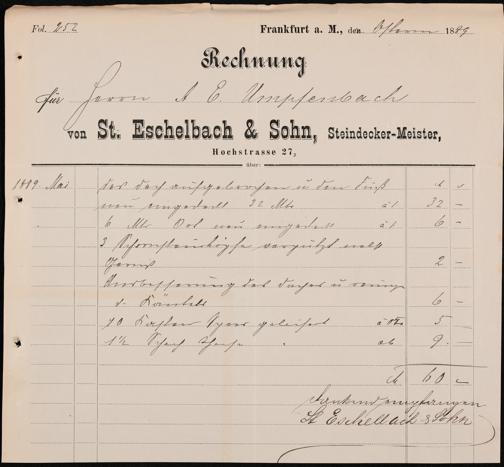 Fol. 252
Frankfurt a. M., den Ostern 1889
Rechnung
für Herrn A E. Umpfenbach
von St. Eschelbach & Sohn, Steindecker-Meister,
Hochstrasse 27,
über:
1889 Mai das Dach aufgebrochen u den
neu eingedeckt 32 Mtr á 1 32 –
6 Mtr Ort neu eingedeckt á 1 6 –
3 Schornsteinköpfe verputzt
2 –
Ausbesserung des Daches u
6 –
geliefert 5 –
1½ 9 –
M 60 –
Dankend empfangen
St Eschelbach & Sohn